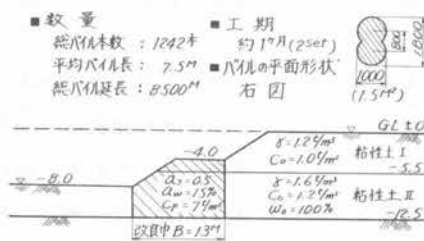 ■ 数量
総パイル本数 : 1242本
平均パイル長 : 7.5M
総パイル延長 : 8500M
■ 工期
約1ヶ月(2set)
■ パイルの平面形状
右図
800
1800
1000
(1.5M²)
GL±0
-4.0
γ=1.2t/m³
C₀=1.0t/m²
粘性土I
-5.5
-8.0
as=0.5
aw=15%
Cp=7t/m²
γ=1.6t/m³
C₀=1.2t/m²
W₀=100%
粘性土II
-12.5
改良巾B=13M